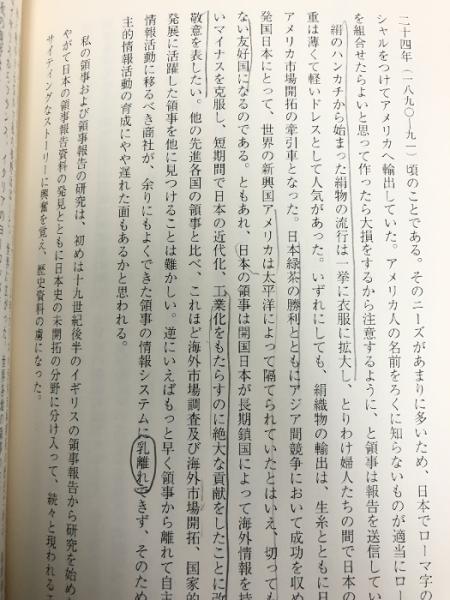 二十四年(一八九〇―九一)頃のことである。そのニーズがあまりに多いため、日本でローマ字の
シャルをつけてアメリカへ輸出していた。アメリカ人の名前をろくに知らないものが適当にロー
を組合せたらよいと思って作ったら大損をするから注意するように、と領事は報告を送信してい
絹のハンカチから始まった絹物の流行は一挙に衣服に拡大し、とりわけ婦人たちの間で日本の
重は薄くて軽いドレスとして人気があった。いずれにしても、絹織物の輸出は、生糸とともに日
アメリカ市場開拓の牽引車となった。日本緑茶の勝利とともにアジア間競争において成功を収め
発国日本にとって、世界の新興国アメリカは太平洋によって隔てられていたとはいえ、切っても
ない友好国になるのである。ともあれ、日本の領事は開国日本が長期鎖国によって海外情報を持
いマイナスを克服し、短期間で日本の近代化、工業化をもたらすのに絶大な貢献をしたことに改
敬意を表したい。他の先進各国の領事と比べ、これほど海外市場調査及び海外市場開拓、国家的
発展に活躍した領事を他に見つけることは難かしい。逆にいえばもっと早く領事から離れて自主
情報活動に移るべき商社が、余りにもよくできた領事の情報システムに乳離れできず、そのため
主的情報活動の育成にやや遅れた面もあるかと思われる。
私の領事および領事報告の研究は、初めは十九世紀後半のイギリスの領事報告から研究を始め
やがて日本の領事報告資料の発見とともに日本史の未開拓の分野に分け入って、続々と現われるこ
サイティングなストーリーに興奮を覚え、歴史資料の虜になった。